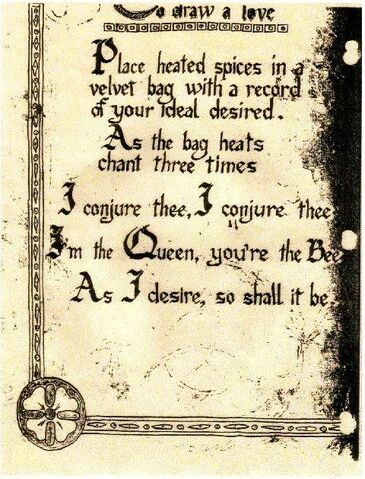 To draw a love
Place heated spices in a
velvet bag with a record
of your ideal desired.
As the bag heats
chant three times
I conjure thee, I conjure thee
I'm the Queen, you're the Bee
As I desire, so shall it be.